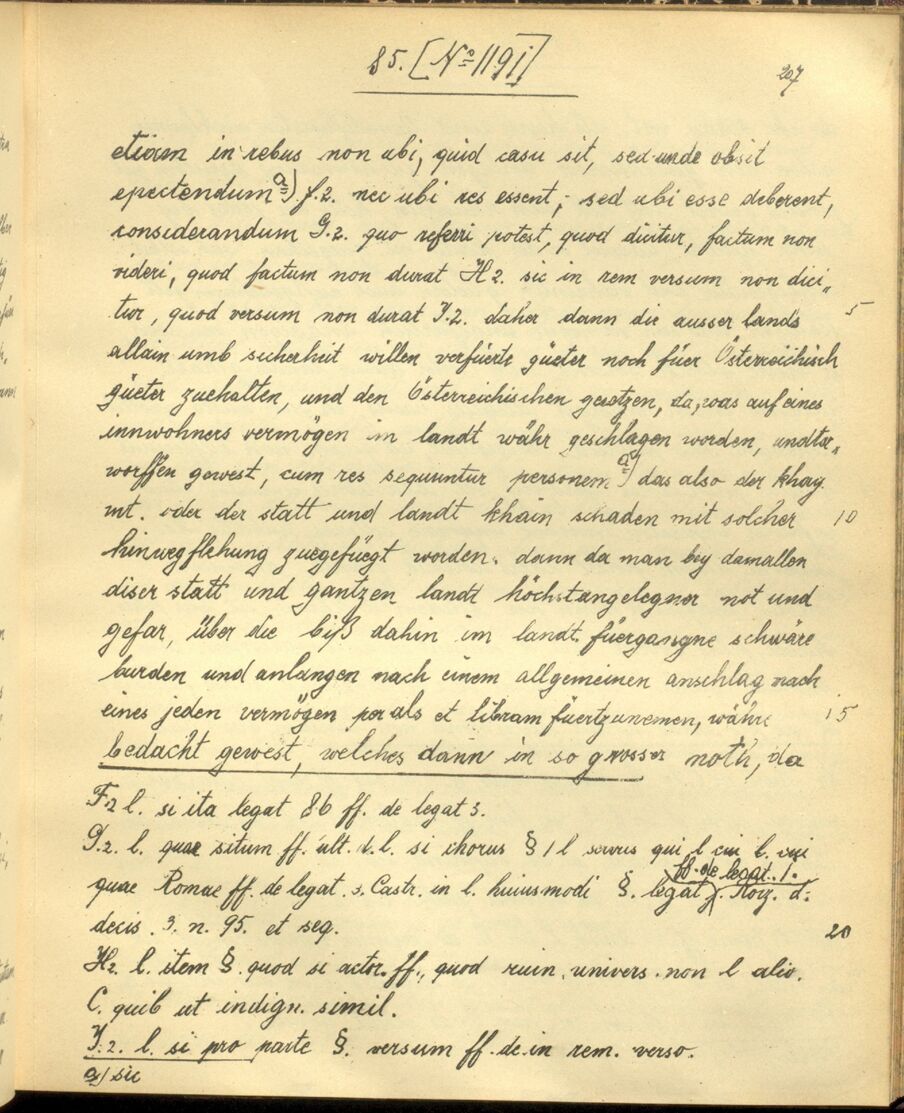 85. [Nº 1191]
207
etiam in rebus non ubi, quid casu sit, sed unde obsit
epectendum a) f.2. nec ubi res essent, sed ubi esse deberent,
considerandum G.2. quo referri potest, quod dicitur, factum non
videri, quod factum non durat H2. sic in rem versum non dici„
tur, quod versum non durat J.2. daher dann die ausser lands 5
allain umb sicherheit willen verfüerte güeter noch füer Österreichisch
güeter zuehalten, und den Österreichischen gesetzen, da, was auf eines
innwohners vermögen im landt währ geschlagen worden, undter„
worffen gewest, cum res sequuntur personem a) das also der khay.
mt. oder der statt und landt khain schaden mit solcher 10
hinwegflehung zuegefüegt worden. dann da man bey damallen
diser statt und gantzen landt höchstangelegner not und
gefar, über die biß dahin im landt füergangne schwäre
burden und anlangen nach einem allgemeinen anschlag nach
eines jeden vermögen per als et libram füertzunemen, währe 15
bedacht gewest, welches dann in so grosser noth, da
F2 l. si ita legat 86 ff. de legat 3.
G.2. l. quae situm ff. ult. d. l. si chorus § 1 l servus qui l cui l. cui
ff. de legat. 1.
quae Romae ff. de legat. 3. Castr. in l. huiusmodi §. legat Roiz. d.
decis. 3. n. 95. et seq. 20
H2. l. item §. quod si actor. ff., quod cuin. univers. non l alio.
C. quib ut indign. simil.
J.2. l. si pro parte §. versum ff. de in rem. verso.
a) sic